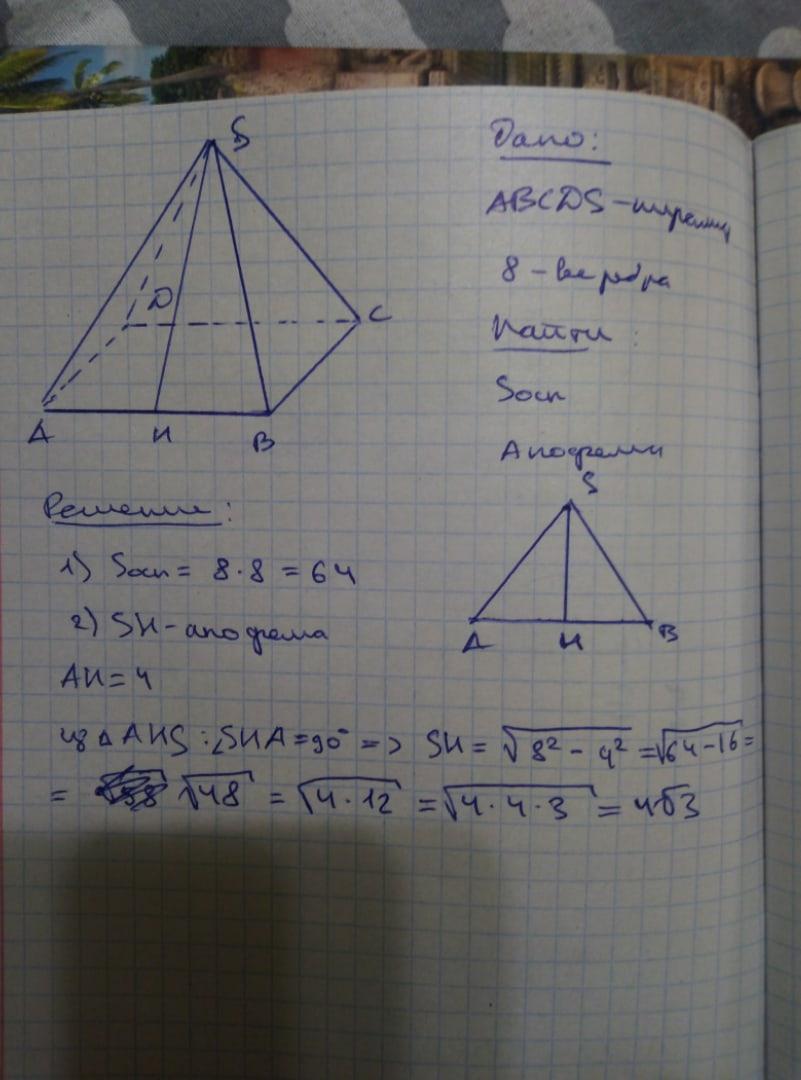 S
D
C
A
H
B
Дано:
ABCDS – пирамид
8 – все ребра
Найти:
Sосн
Апофемы
S
A
H
B
Решение:
1) Sосн = 8·8 = 64
2) SH – апофема
AH = 4
из △ AHS: ∠SHA = 90° => SH = √8² – 4² = √64–16 =
= √48 = √4·12 = √4·4·3 = 4√3